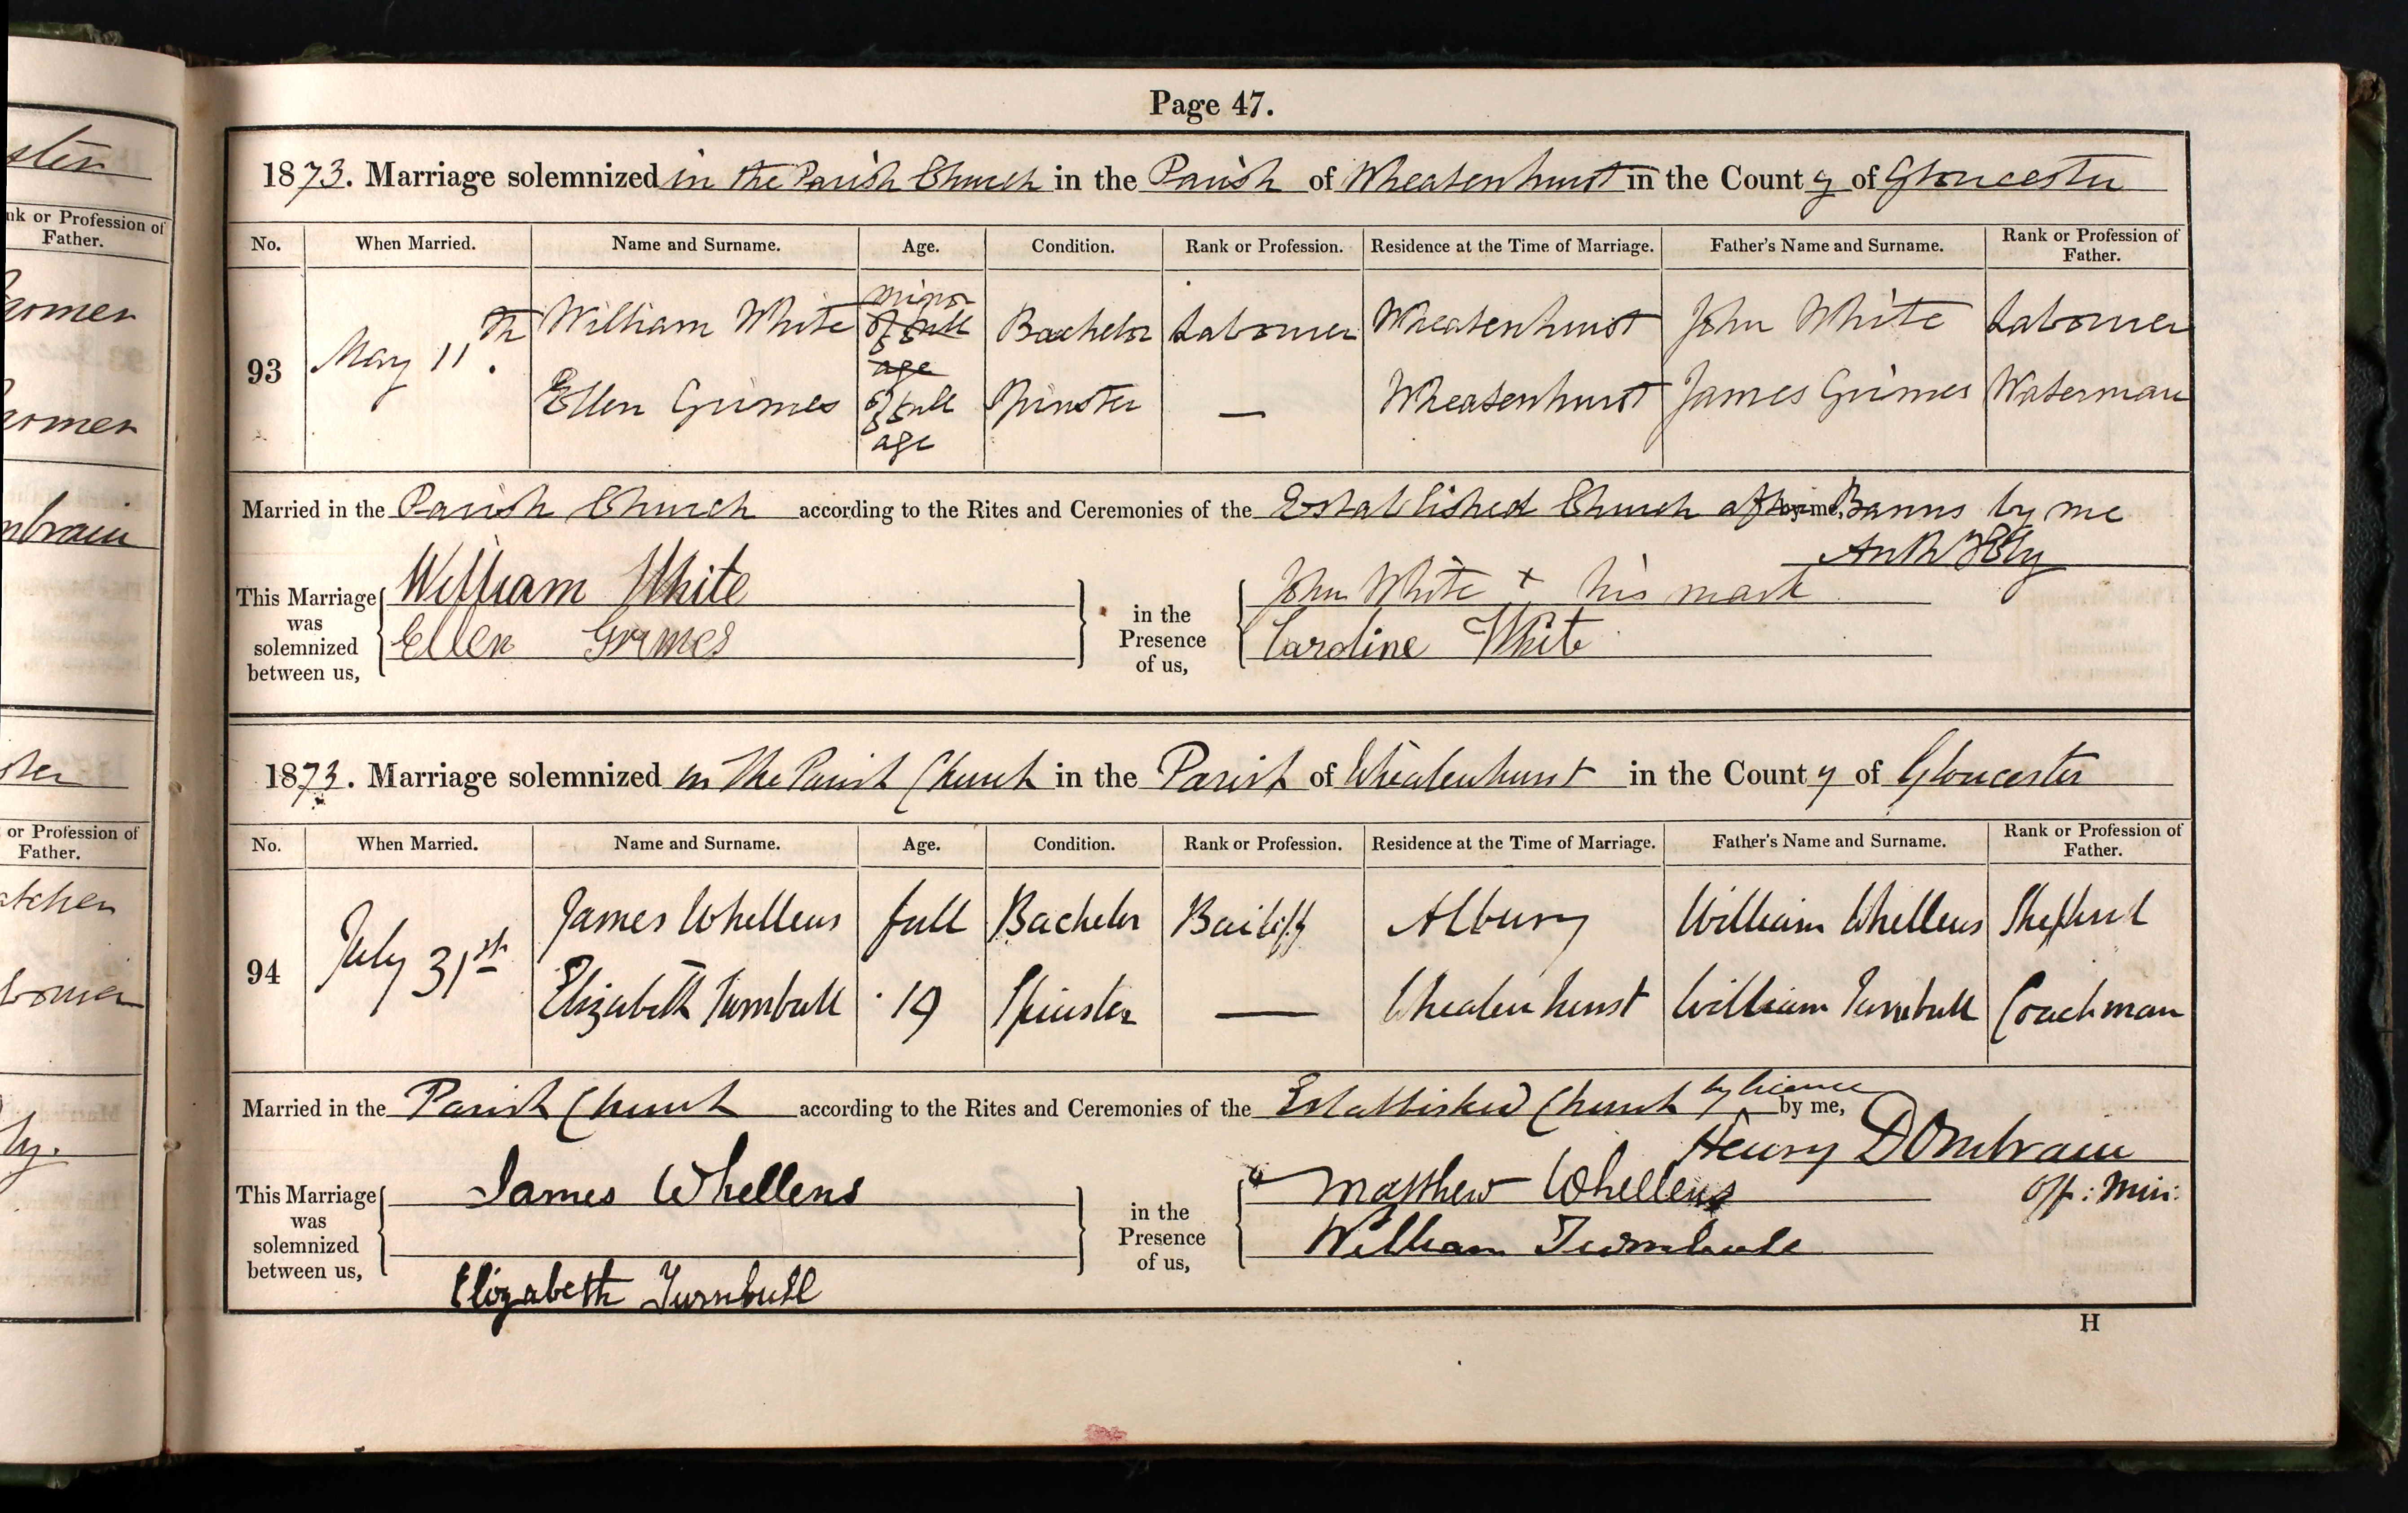 Page 47.
1873. Marriage solemnized in the Parish Church in the Parish of Wheatenhurst in the County of Gloucester
No. When Married. Name and Surname. Age. Condition. Rank or Profession. Residence at the Time of Marriage. Father's Name and Surname. Rank or Profession of Father.
93 May 11th. William White minor of full age Bachelor Labourer Wheatenhurst John White Labourer
Ellen Grimes of full age Spinster — Wheatenhurst James Grimes Waterman
Married in the Parish Church according to the Rites and Ceremonies of the Established Church after Banns by me
This Marriage was solemnized between us, William White in the Presence of us, John White + his mark
Ellen Grimes Caroline White
1873. Marriage solemnized in the Parish Church in the Parish of Wheatenhurst in the County of Gloucester
No. When Married. Name and Surname. Age. Condition. Rank or Profession. Residence at the Time of Marriage. Father's Name and Surname. Rank or Profession of Father.
94 July 31st James Whellens full Bachelor Bailiff Albury William Whellens Shepherd
Elizabeth Turnbull 19 Spinster — Wheatenhurst William Turnbull Coachman
Married in the Parish Church according to the Rites and Ceremonies of the Established Church by licence by me,
Henry D'Ombrain
Off: Min:
This Marriage was solemnized between us, James Whellens in the Presence of us, Matthew Whellens
Elizabeth Turnbull William Turnbull
H
or Profession of
Father.